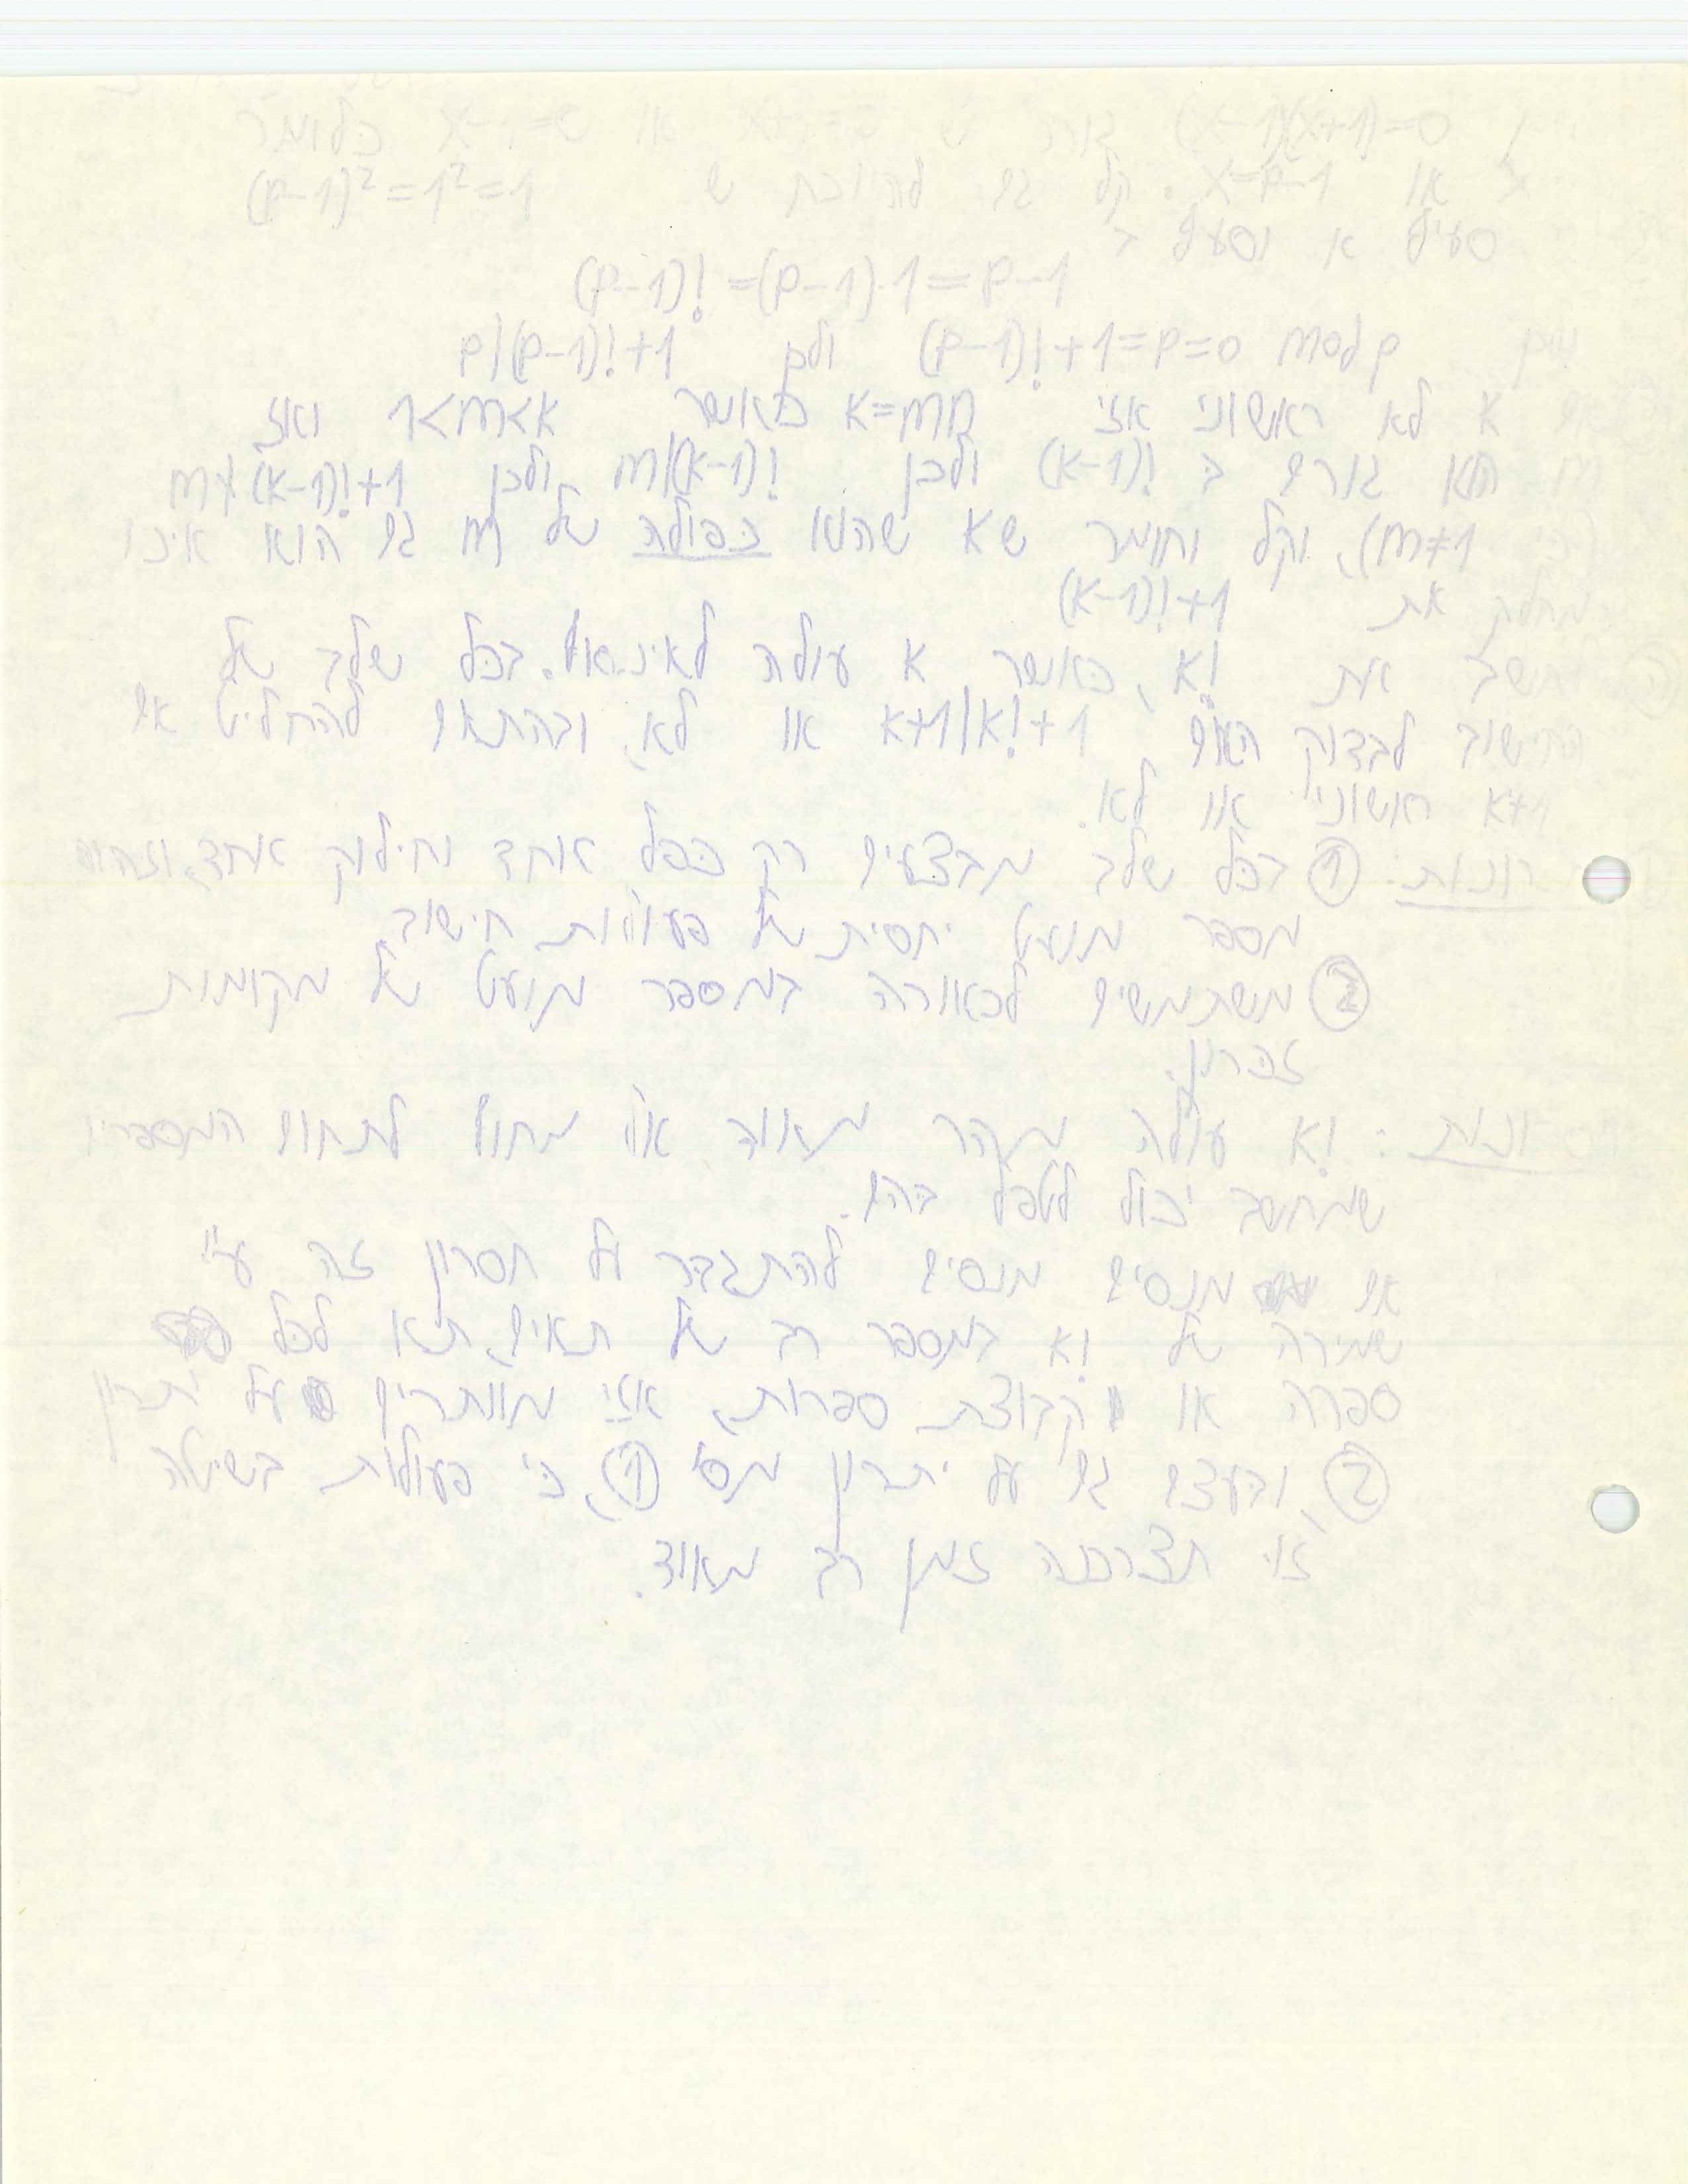 (x-1)(x+1)=0 זה ש x+1=0 או ש x-1=0 כלומר
או x=p-1. קל גם להיווכח ש (p-1)²=1²=1
סעיף א וסעיף ב
(p-1)!=(p-1)·1=p-1
(p-1)!+1=p=0 mod p ולכן p|(p-1)!+1
k לא ראשוני אזי k=mn כאשר 1<m<k ואז
m הוא גורם ב (k-1)! ולכן m|(k-1)! ולכן m∤(k-1)!+1
m≠1), וקל וחומר ש k שהוא כפולה של m גם הוא אינו
מחלק את (k-1)!+1
לחשב את k!, כאשר k עולה לאינסוף. בכל שלב של
החישוב לבדוק האם k+1|k!+1 או לא, ובהתאם להחליט אם
k+1 ראשוני או לא.
רונות: ① בכל שלב מבצעים רק כפל אחד וחילוק אחד, וזהו
מספר מועט יחסית של פעולות חישוב
② משתמשים לכאורה במספר מועט של מקומות
זכרון.
ונות: k! עולה מהר מאוד אל מחוץ לתחום המספרים
שמחשב יכול לטפל בהם.
אם מנסים להתגבר על חסרון זה ע"י
שמירה של k! במספר רב של תאים, תא לכל
ספרה או קבוצת ספרות, אזי מוותרים על יתרון
② ובעצם גם על יתרון מס' ①, כי פעולות בשיטה
זו תצרכנה זמן רב מאוד.